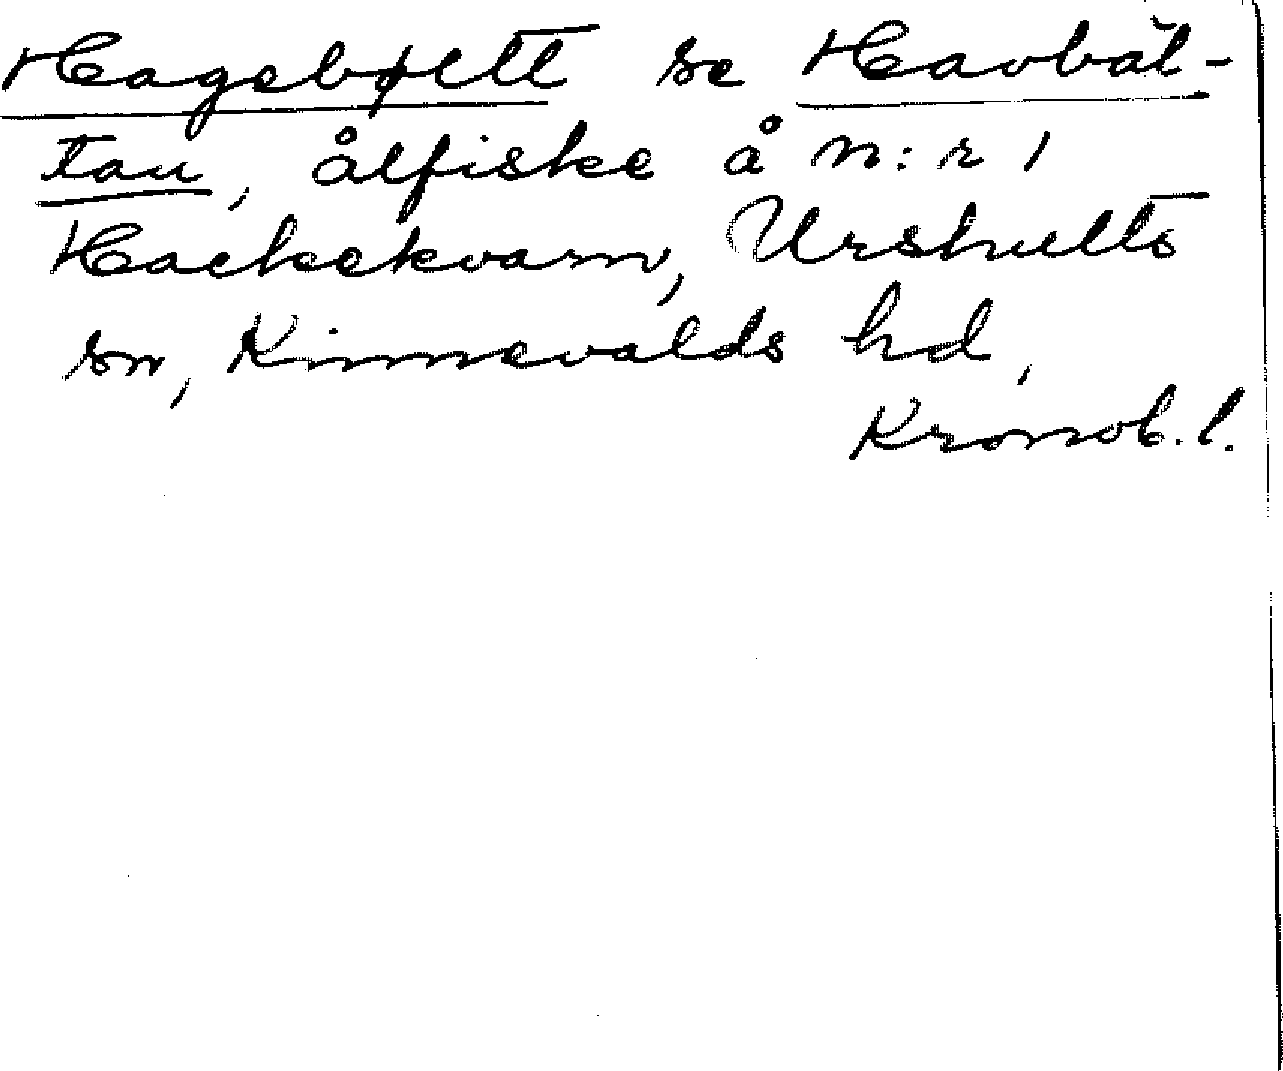 Hagebøltt se Havbäl-
tau, ålfiske å n:r 1
Hackekvarn, Urshults
sn, Kinnevalds hd,
Kronob. l.